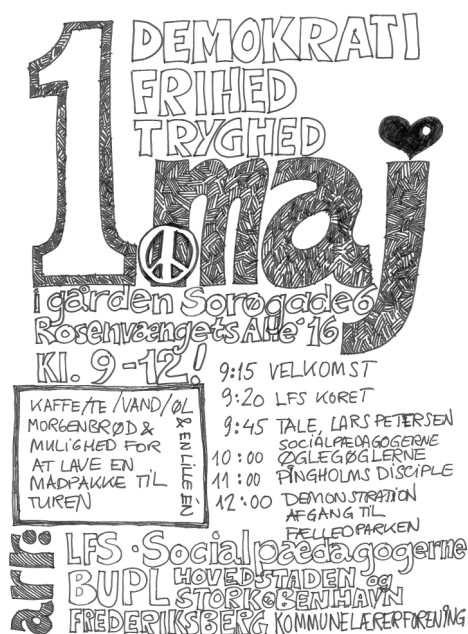 DEMOKRATI
FRIHED
TRYGHED
1. maj
i gården Sorøgade 6
Rosenvængets Allé 16
Kl. 9-12!
KAFFE/TE/VAND/ØL
& EN LILLE ÉN
MORGENBRØD &
MULIGHED FOR
AT LAVE EN
MADPAKKE TIL
TUREN
9:15 VELKOMST
9:20 LFS KORET
9:45 TALE, LARS PETERSEN
SOCIALPÆDAGOGERNE
10:00 ØGLEGØGLERNE
11:00 PINGHOLMS DISCIPLE
12:00 DEMONSTRATION
AFGANG TIL
FÆLLEDPARKEN
arr:
LFS · Socialpædagogerne
BUPL HOVEDSTADEN og
STORKØBENHAVN
FREDERIKSBERG KOMMUNELÆRERFORENING